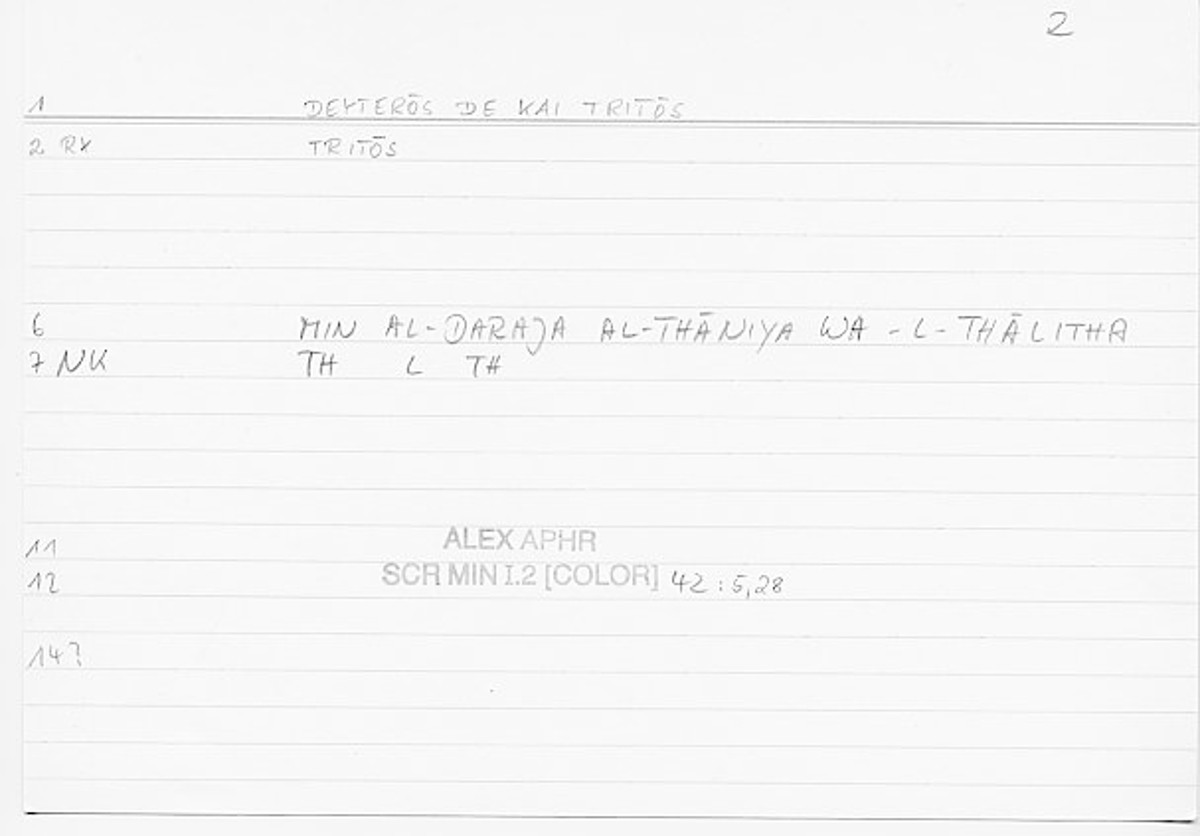 2
1 DEYTERŌS DE KAI TRITŌS
2 RX TRITŌS
6 MIN AL-DARAJA AL-THĀNIYA WA-L-THĀLITHA
7 NK TH L TH
11 ALEX APHR
12 SCR MIN I.2 [COLOR] 42:5,28
14?